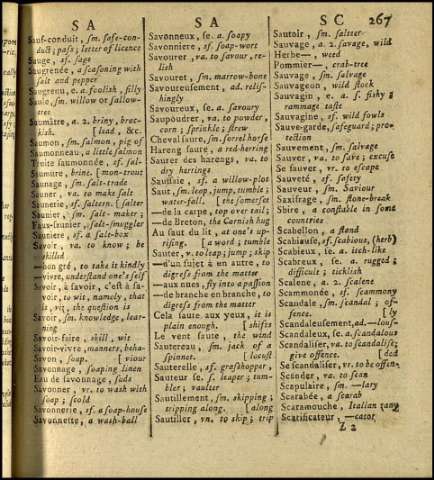 SA
Sauf-conduit, sm. safe-con-
duct; pass; letter of licence
Sauge, sf. sage
Saugrende, a seasoning with
salt and pepper
Saugrenu, e. a foolish, silly
Saule, sm. willow or sallow-
tree
Saumâtre, a. 2. briny, brac-
kish. [lead, &c.
Saumon, sm. salmon, pig of
Saumonneau, a little salmon
Traite saumonnée, sf. sal-
Saumure, brine. [mon-trout
Saunage, sm. salt-trade
Sauner, va. to make salt
Saunerie, sf. saltern. [salter
Saunier, sm. salt-maker;
Faux-saunier, salt-smuggler
Saunière, sf. a salt-box
Savoir, va. to know; be
skilled
—bon gré, to take it kindly
—vivre, understand one's self
Savoir, à savoir, c'est à sa-
voir, to wit, namely, that
is, viz, the question is
Savoir, sm. knowledge, lear-
ning
Savoir-faire, skill, wit
Savoir-vivre, manners, beha-
Savon, soap. [viour
Savonnage, soaping linen
Eau de savonnage, suds
Savonner, vr. to wash with
soap; scold
Savonnerie, a soap-house
Savonnette, a wash-ball
SA
Savonneux, se. a. soapy
Savonniere, sf. soap-wort
Savourer, va. to savour, re-
lish
Savouret, sm. marrow-bone
Savoureusement, ad. relis-
hingly
Savoureux, se. a. savoury
Saupoudrer, va. to powder,
corn; sprinkle; strew
Cheval saure, sm. sorrel horse
Hareng saure, a red-herring
Saurer des harengs, va. to
dry herrings
Saussaie, sf. a willow-plot
Saut, sm. leap, jump, tumble;
water-fall. [the somerset
—de la carpe, top over tail;
—de Breton, the Cornish hug
Au saut du lit, at one's up-
rising. [a word; tumble
Sauter, v. to leap; jump; skip
—d'un sujet à un autre, to
digress from the matter
—aux nues, fly into a passion
—de branche en branche, to
digress from the matter
Cela saute aux yeux, it is
plain enough. [shifts
Le vent saute, the wind
Sautereau, sm. jack of a
spinnet. [locust
Sauterelle, sf. grashopper,
Sauteur se f. leaper; tum-
bler; vaulter
Sautillement, sm. skipping;
tripping along. [along
Sautiller, vn. to skip; trip
SC 267
Sautoir, sm. saltier
Sauvage, a. 2. savage, wild
Herbe—, weed
Pommier—, crab-tree
Sauvage, sm. salvage
Sauvageon, wild stock
Sauvagin, e a. s. fishy;
rammish taste
Sauvagine, sf. wild fowls
Sauve-garde, safeguard; pro-
tection
Sauvement, sm. salvage
Sauver, va. to save; excuse
Se sauver, vr. to escape
Sauveté, sf. safety
Sauveur, sm. Saviour
Saxifrage, sm. stone-break
Sbire, a constable in some
countries
Scabellon, a stand
Scabieuse, sf. scabious, (herb)
Scabieux, se. a. itch-like
Scabreux, se. a. rugged;
difficult; ticklish
Scalene, a. 2. scalene
Scammonée, sf. scammony
Scandale, sm. scandal; of-
fence. [ly
Scandaleusement, ad.—lous-
Scandaleux, se. a. scandalous
Scandaliser, va. to scandalise;
give offence. [ded
Se scandaliser, vr. to be offen-
Scander, va. to scan
Scapulaire, sm. —lary
Scarabée, a scarab
Scaramouche, Italian zany
Scarificateur, —cator
Z 2